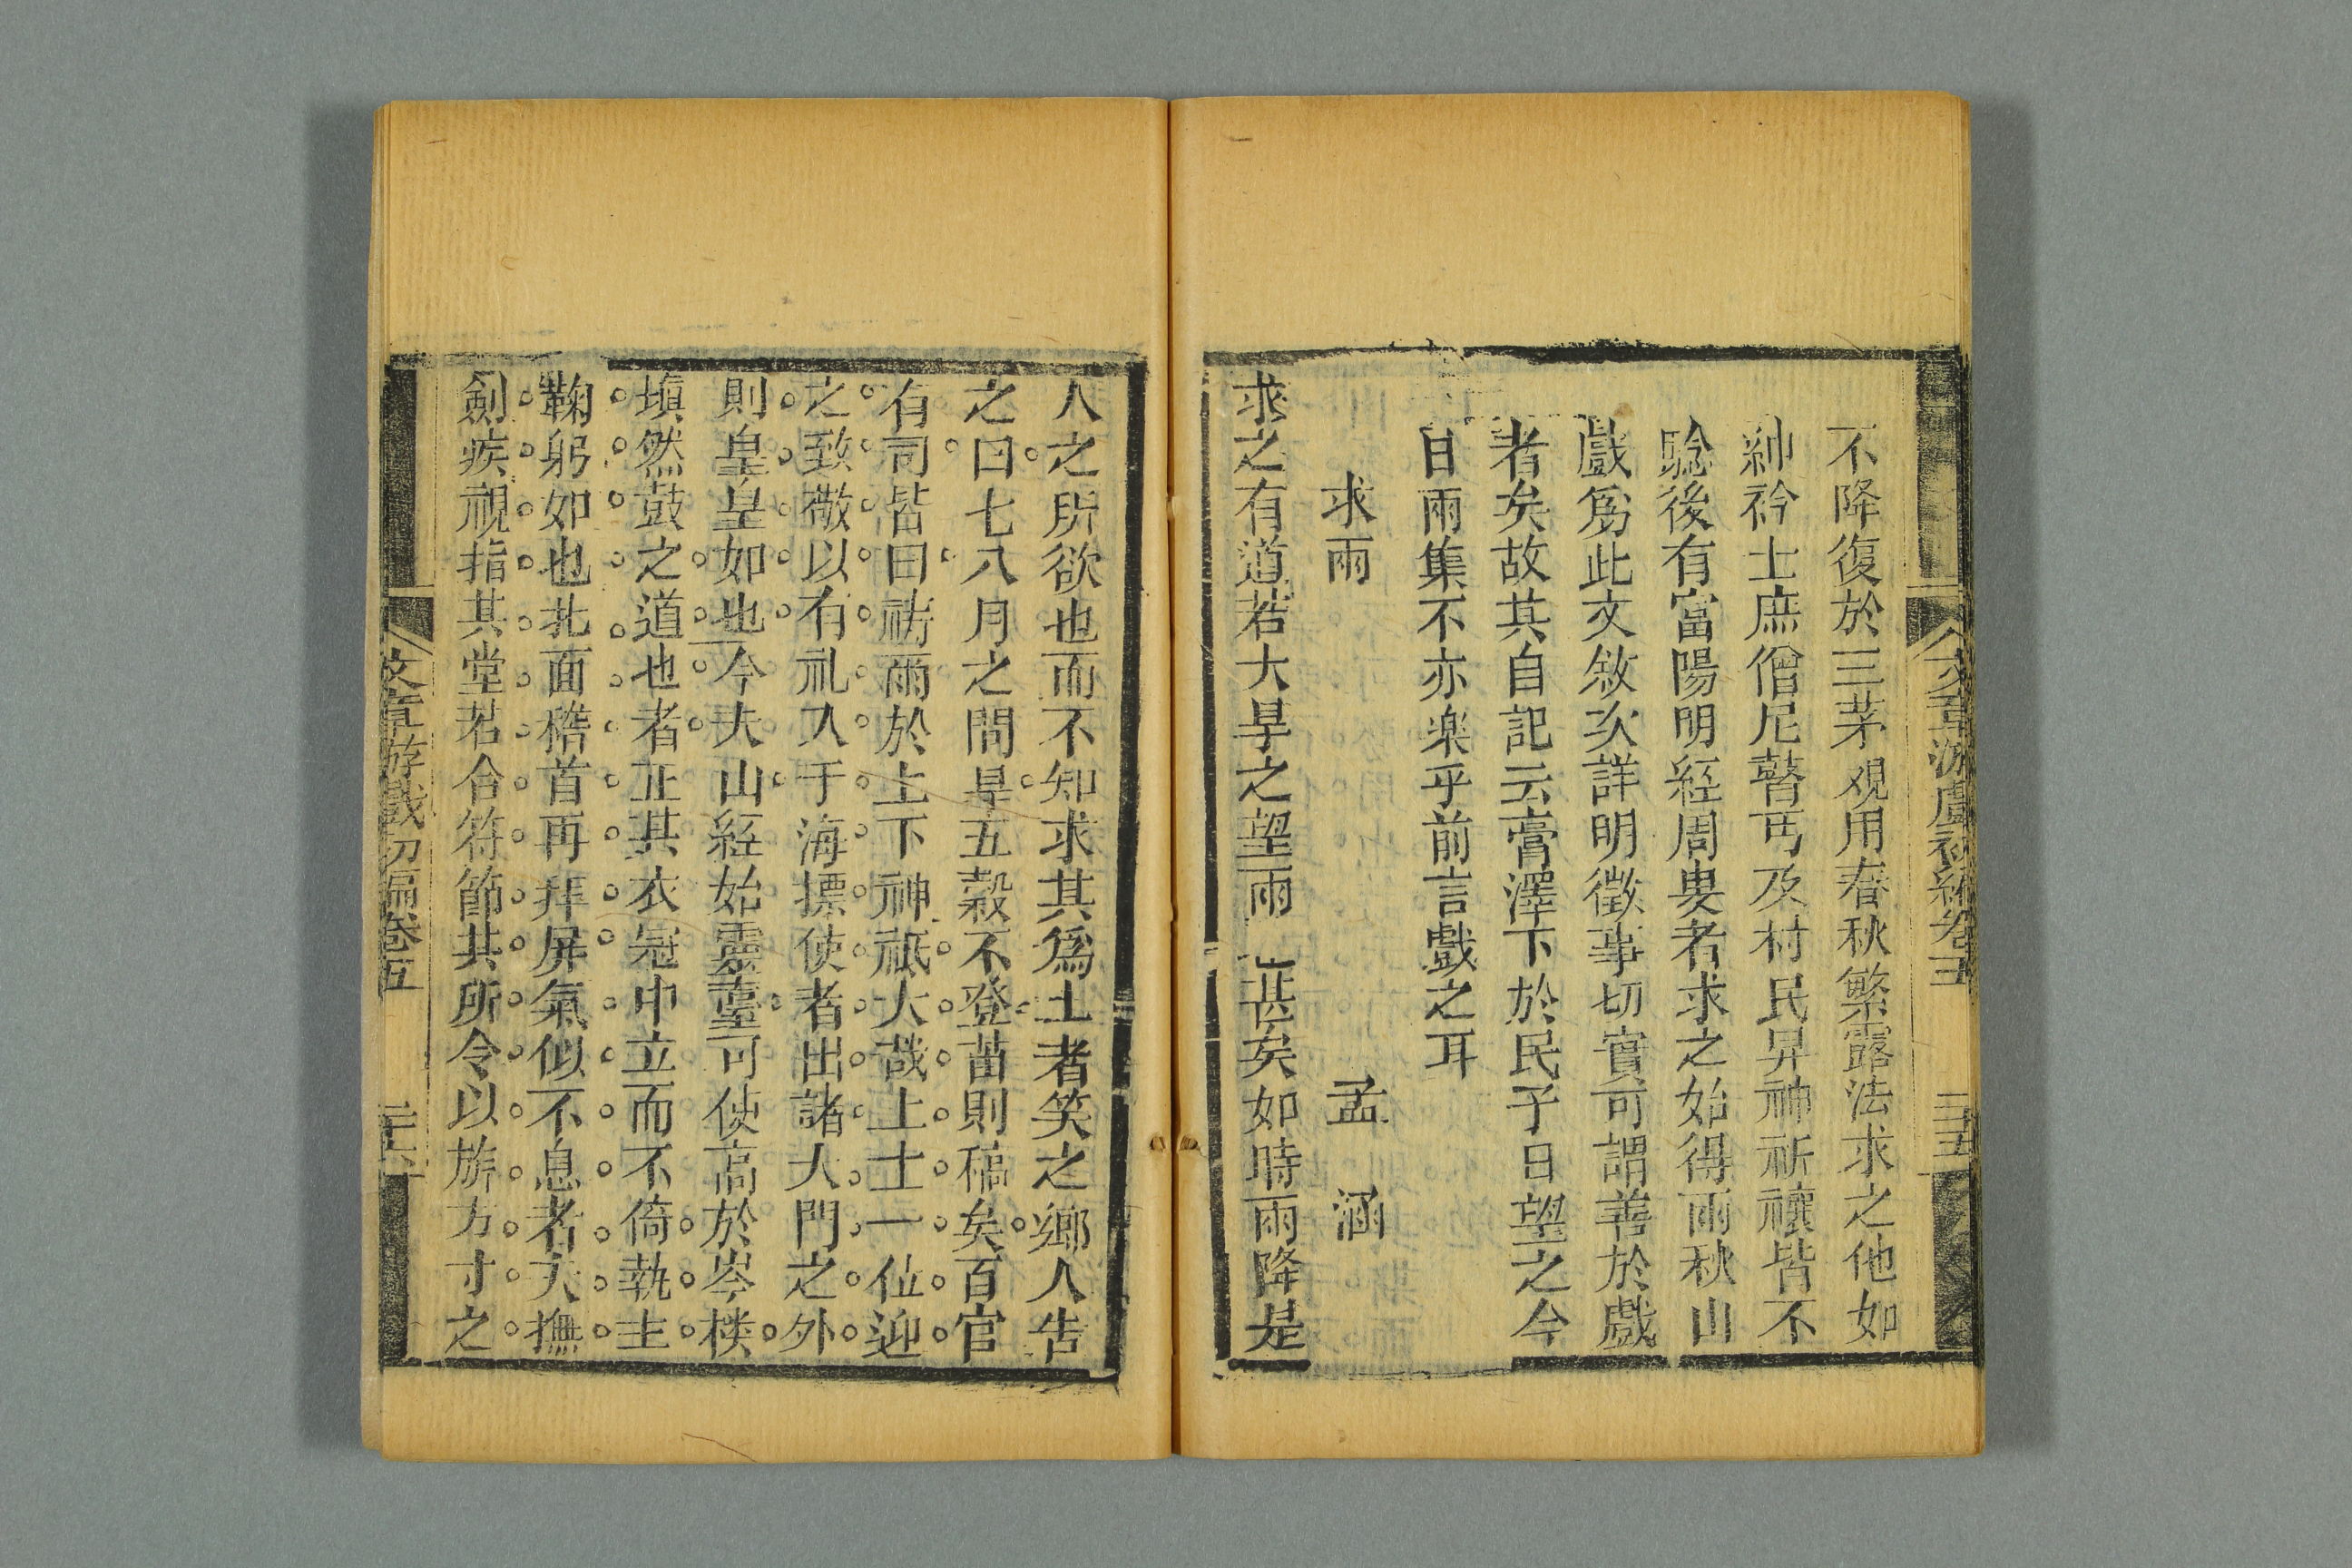 文章游戲初編卷五
三五
不降復於三茅观用春秋繁露法求之他如
紳衿士庶僧尼瞽丐及村民昇神祈禳皆不
騐後有富陽明經周者求之始得雨秋山
戲為此文敘次詳明徵事切實可謂善於戲
者矣故其自記云膏澤下於民予日望之今
日雨集不亦楽乎前言戲之耳
求雨 孟涵
求之有道若大旱之望雨 甚矣如時雨降是
人之所欲也而不知求其為士者笑之鄉人告
之曰七八月之間旱五穀不登苗則稿矣百官
有司皆曰祷雨於上下神祗大哉上士一位迎
之致敬以有礼入于海摽使者出諸大門之外
則皇皇如也今夫山経始靈臺可使高於岑楼
填然鼓之道也者正其衣冠中立而不倚執圭
鞠躬如也北面稽首再拜屏氣似不息者夫撫
劍疾視指其堂若合符節其所令以旂方寸之
文章游戲初編卷五
三十六